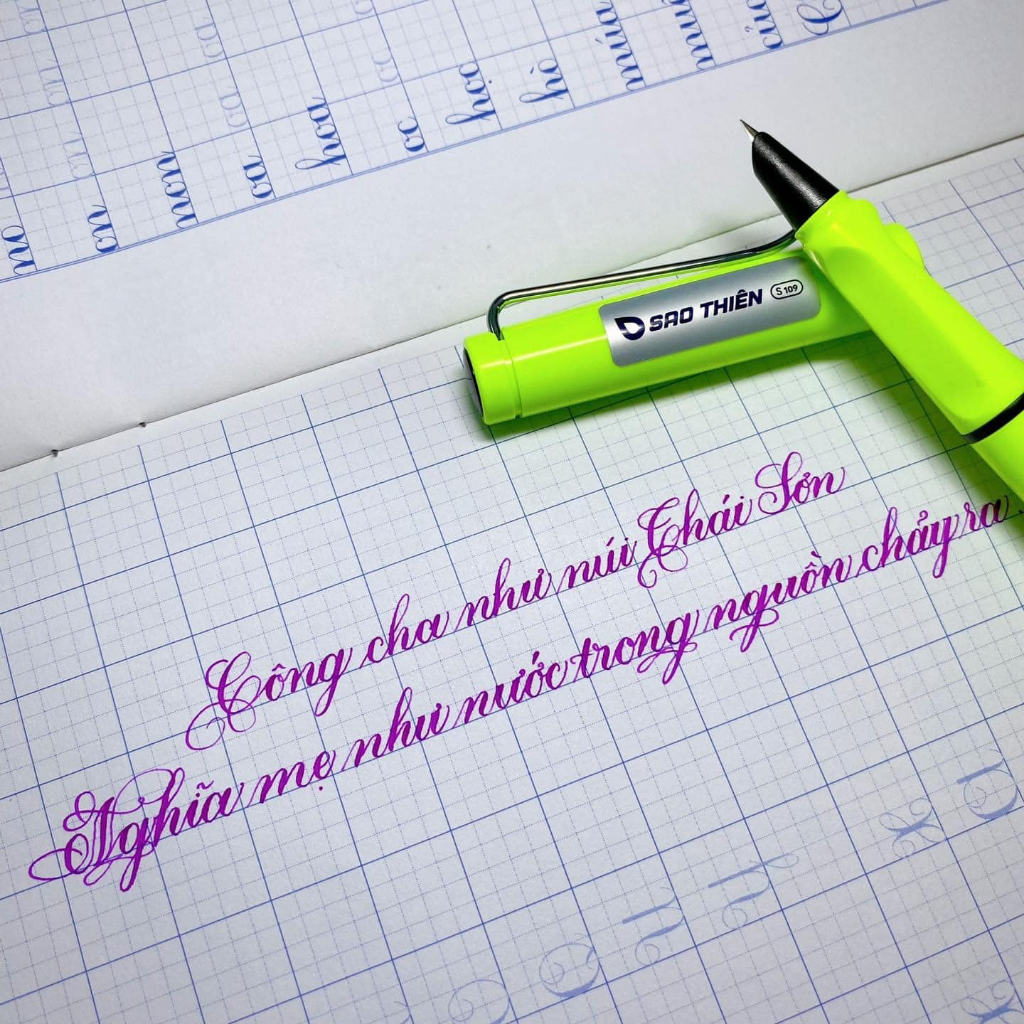 mơ
cn
ncn
ca
hoa
cc
học
hè
múa
của
SAO THIÊN S 109
Công cha như núi Thái Sơn
Nghĩa mẹ như nước trong nguồn chảy ra